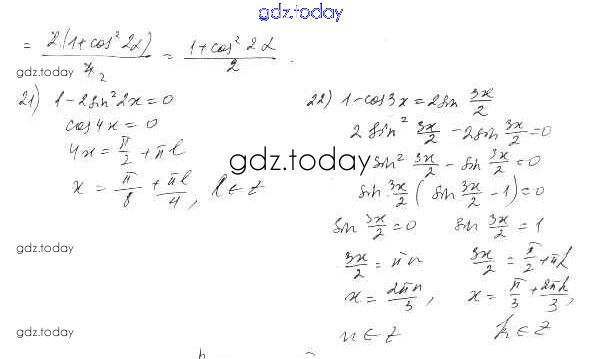 gdz.today
= 2(1+cos² 2α)/4 2 = 1+cos² 2α/2.
gdz.today
21) 1-2sin² 2x=0
cos4x=0
4x=π/2+πl
x=π/8+πl/4, l∈z
22) 1-cos3x=2sin 3x/2
2sin² 3x/2 -2sin 3x/2=0
gdz.today
sin² 3x/2 - sin 3x/2=0
sin 3x/2 (sin 3x/2 -1)=0
sin 3x/2=0 sin 3x/2=1
3x/2=πn 3x/2=π/2+πk
x=2πn/3, x=π/3+2πk/3,
n∈z k∈z
gdz.today
gdz.today